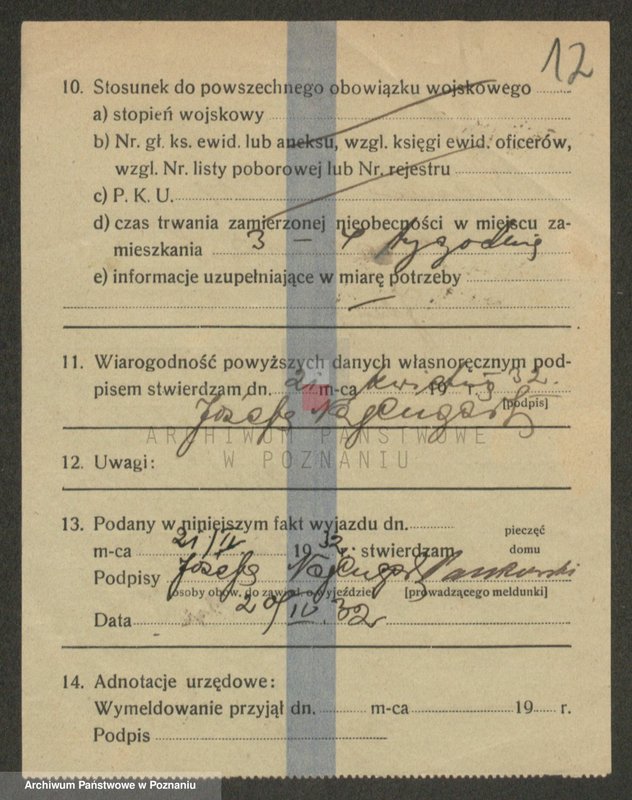 12
10. Stosunek do powszechnego obowiązku wojskowego
a) stopień wojskowy
b) Nr. gł. ks. ewid. lub aneksu, wzgl. księgi ewid. oficerów,
wzgl. Nr. listy poborowej lub Nr. rejestru
c) P. K. U.
d) czas trwania zamierzonej nieobecności w miejscu za-
mieszkania 3 – 4 tygodnie
e) informacje uzupełniające w miarę potrzeby
—
11. Wiarogodność powyższych danych własnoręcznym pod-
pisem stwierdzam dn. 21 m-ca kwietnia 1932 r.
Józefa [podpis]
ARCHIWUM PAŃSTWOWE
W POZNANIU
12. Uwagi:
13. Podany w niniejszym fakt wyjazdu dn.
pieczęć
m-ca 21/IV 1932 r. stwierdzam domu
Podpisy Józefa
(osoby obow. do zawiad. o wyjeździe) [prowadzącego meldunki]
Data 20/IV 32
14. Adnotacje urzędowe:
Wymeldowanie przyjął dn. m-ca 19 r.
Podpis
Archiwum Państwowe w Poznaniu